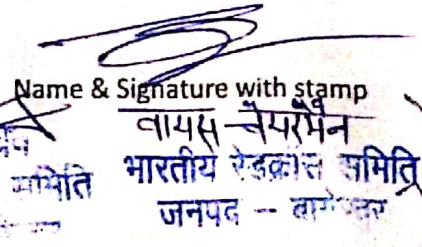 Name & Signature with stamp
वायस चेयरमैन
समिति भारतीय रेडक्रॉस समिति
जनपद - बागेश्वर